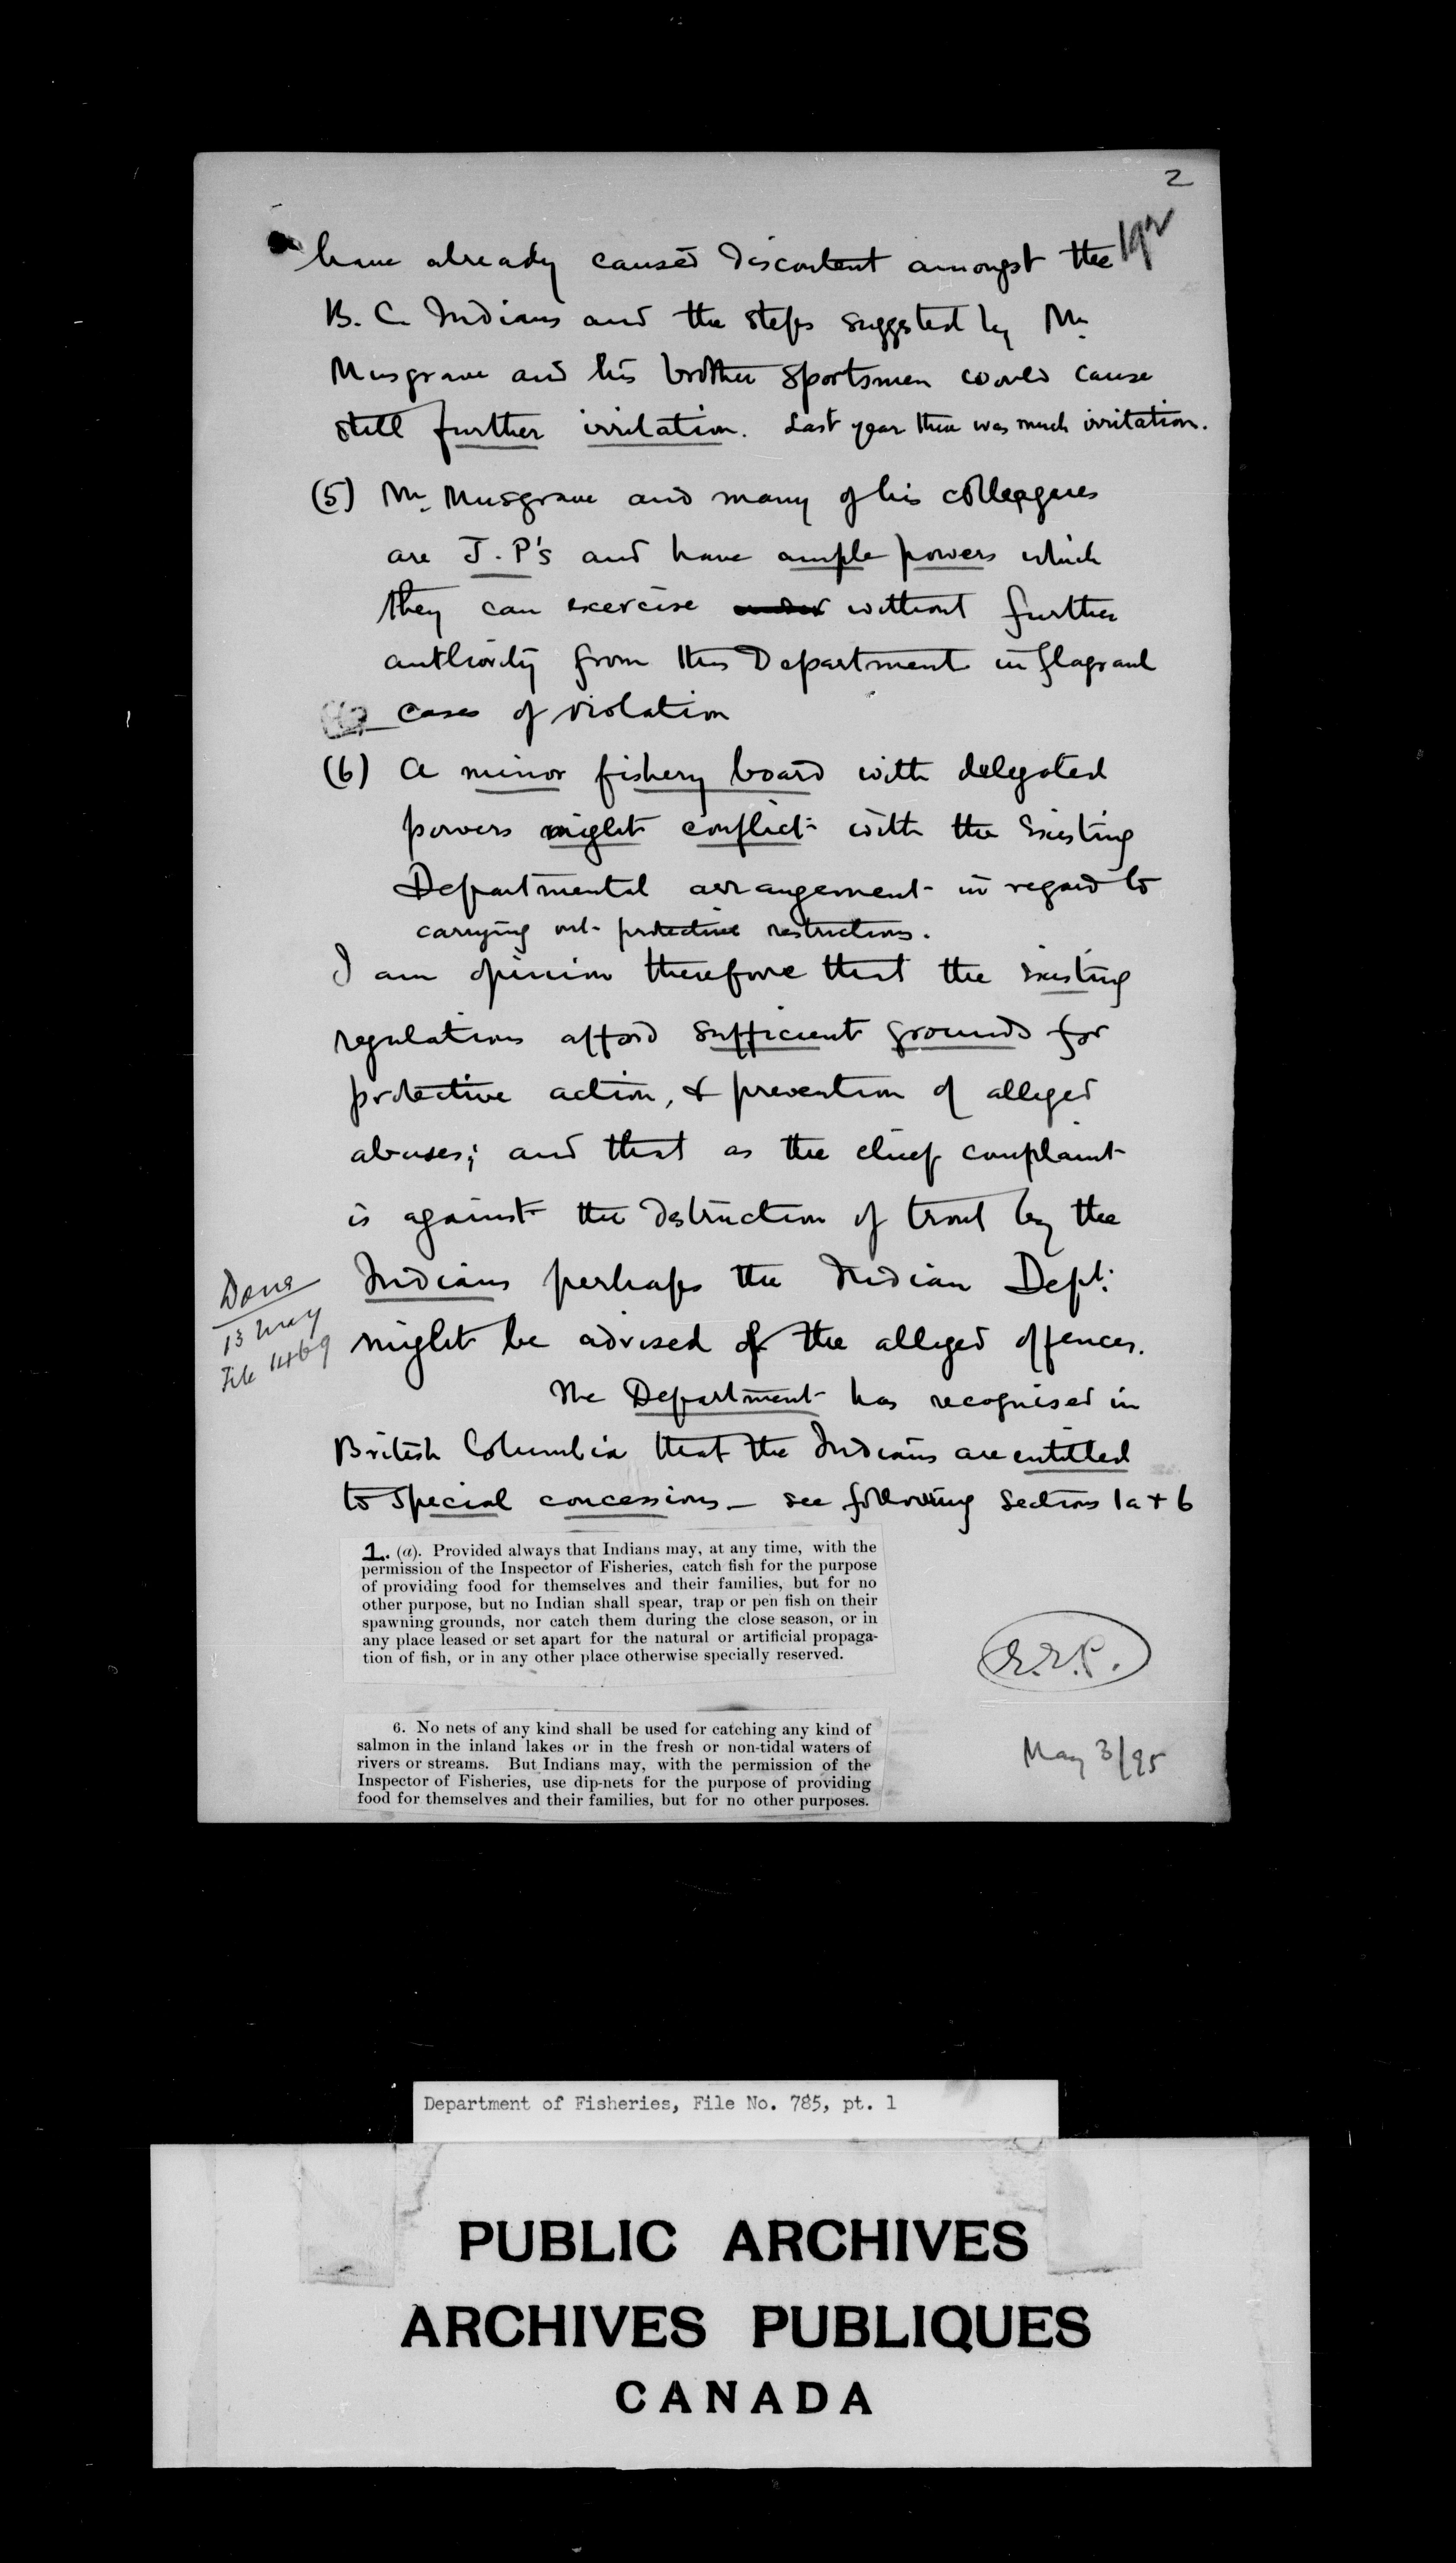 2
192
have already caused discontent amongst the
B. C. Indians and the steps suggested by Mr.
Musgrave and his brother sportsmen would cause
still further irritation. Last year there was much irritation.
(5) Mr. Musgrave and many of his colleagues
are J. P's and have ample powers which
they can exercise without further
authority from this Department in flagrant
cases of violation
(6) A minor fishery board with delegated
powers might conflict with the existing
Departmental arrangement in regard to
carrying out protective restrictions.
I am opinion therefore that the existing
regulations afford sufficient grounds for
protective action, & prevention of alleged
abuses; and that as the chief complaint
is against the destruction of trout by the
Indians perhaps the Indian Dept.
might be advised of the alleged offences.
Done
13 May
File 1469
The Department has recognised in
British Columbia that the Indians are entitled
to special concessions – see following Sections 1a & 6
1. (a). Provided always that Indians may, at any time, with the
permission of the Inspector of Fisheries, catch fish for the purpose
of providing food for themselves and their families, but for no
other purpose, but no Indian shall spear, trap or pen fish on their
spawning grounds, nor catch them during the close season, or in
any place leased or set apart for the natural or artificial propaga-
tion of fish, or in any other place otherwise specially reserved.
E.E.P.
6. No nets of any kind shall be used for catching any kind of
salmon in the inland lakes or in the fresh or non-tidal waters of
rivers or streams. But Indians may, with the permission of the
Inspector of Fisheries, use dip-nets for the purpose of providing
food for themselves and their families, but for no other purposes.
May 3/95
Department of Fisheries, File No. 785, pt. 1
PUBLIC ARCHIVES
ARCHIVES PUBLIQUES
CANADA